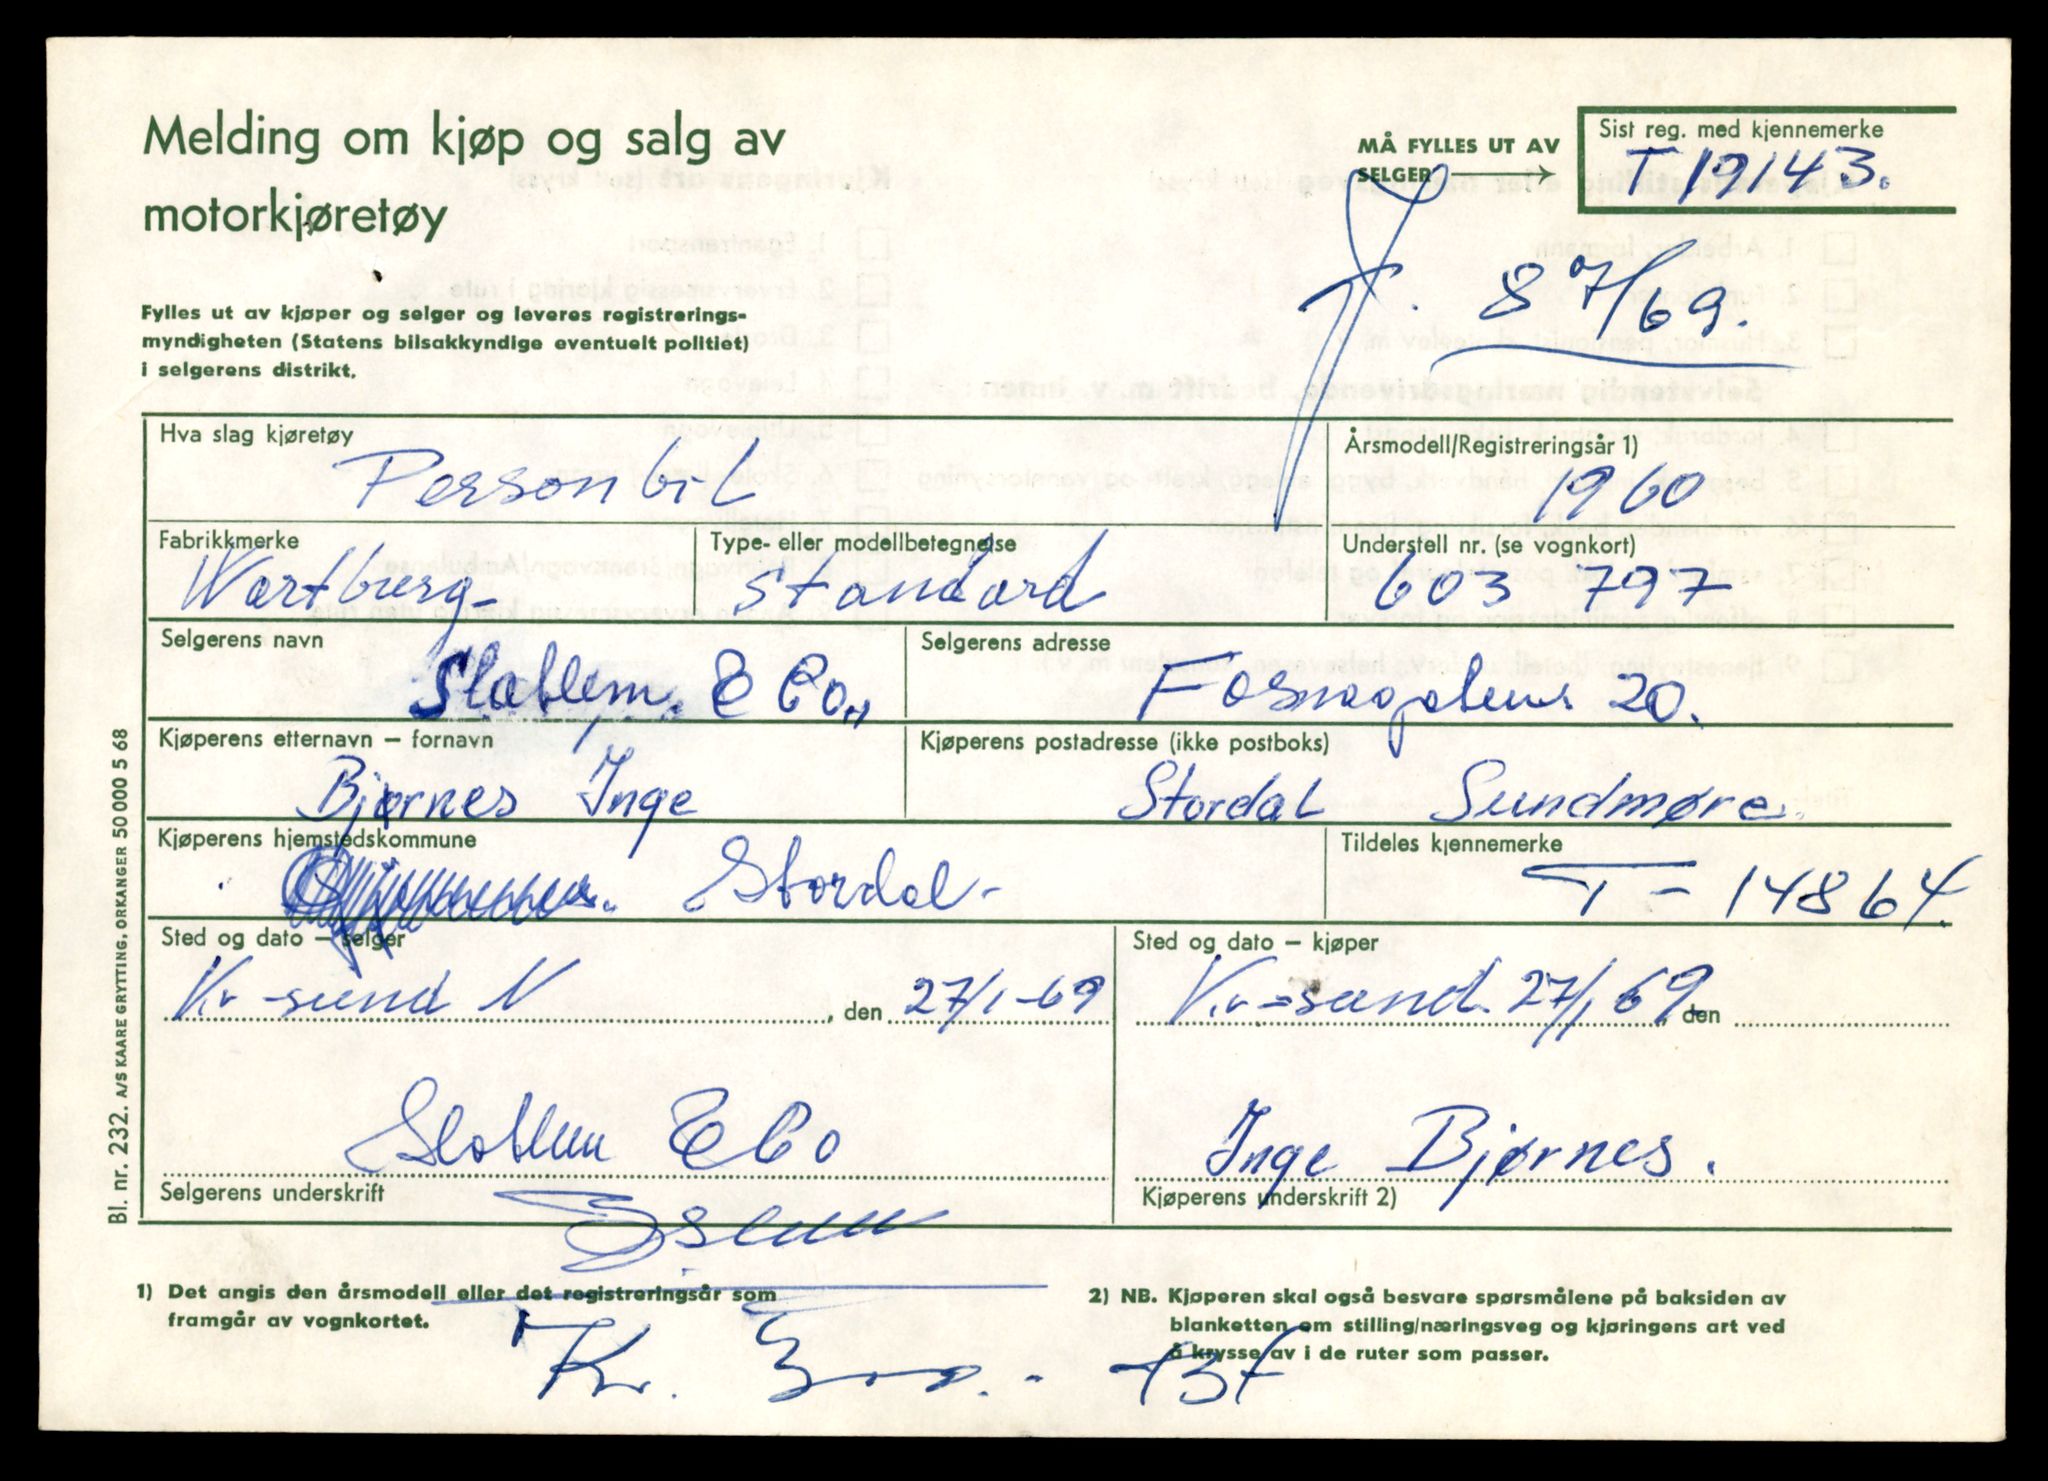 Melding om kjøp og salg av
motorkjøretøy
MÅ FYLLES UT AV
SELGER →
Sist reg. med kjennemerke
T 19143.
8 7/69.
Fylles ut av kjøper og selger og leveres registrerings-
myndigheten (Statens bilsakkyndige eventuelt politiet)
i selgerens distrikt.
Hva slag kjøretøy
Personbil
Årsmodell/Registreringsår 1)
1960
Fabrikkmerke
Wartburg
Type- eller modellbetegnelse
Standard
Understell nr. (se vognkort)
603 797
Selgerens navn
& Co.,
Selgerens adresse
Fosnagatens 20.
Kjøperens etternavn – fornavn
Bjørnes Inge
Kjøperens postadresse (ikke postboks)
Stordal Sundmøre.
Kjøperens hjemstedskommune
Stordal-
Tildeles kjennemerke
T – 14864.
Sted og dato – selger
Kr-sund N, den 27/1-69
Sted og dato – kjøper
Kr-sund. 27/1 69, den
& Co
Selgerens underskrift
Inge Bjørnes.
Kjøperens underskrift 2)
1) Det angis den årsmodell eller det registreringsår som
framgår av vognkortet.
2) NB. Kjøperen skal også besvare spørsmålene på baksiden av
blanketten om stilling/næringsveg og kjøringens art ved
å krysse av i de ruter som passer.
Kr.
Bl. nr. 232. A/S KAARE GRYTTING, ORKANGER 50 000 5 68